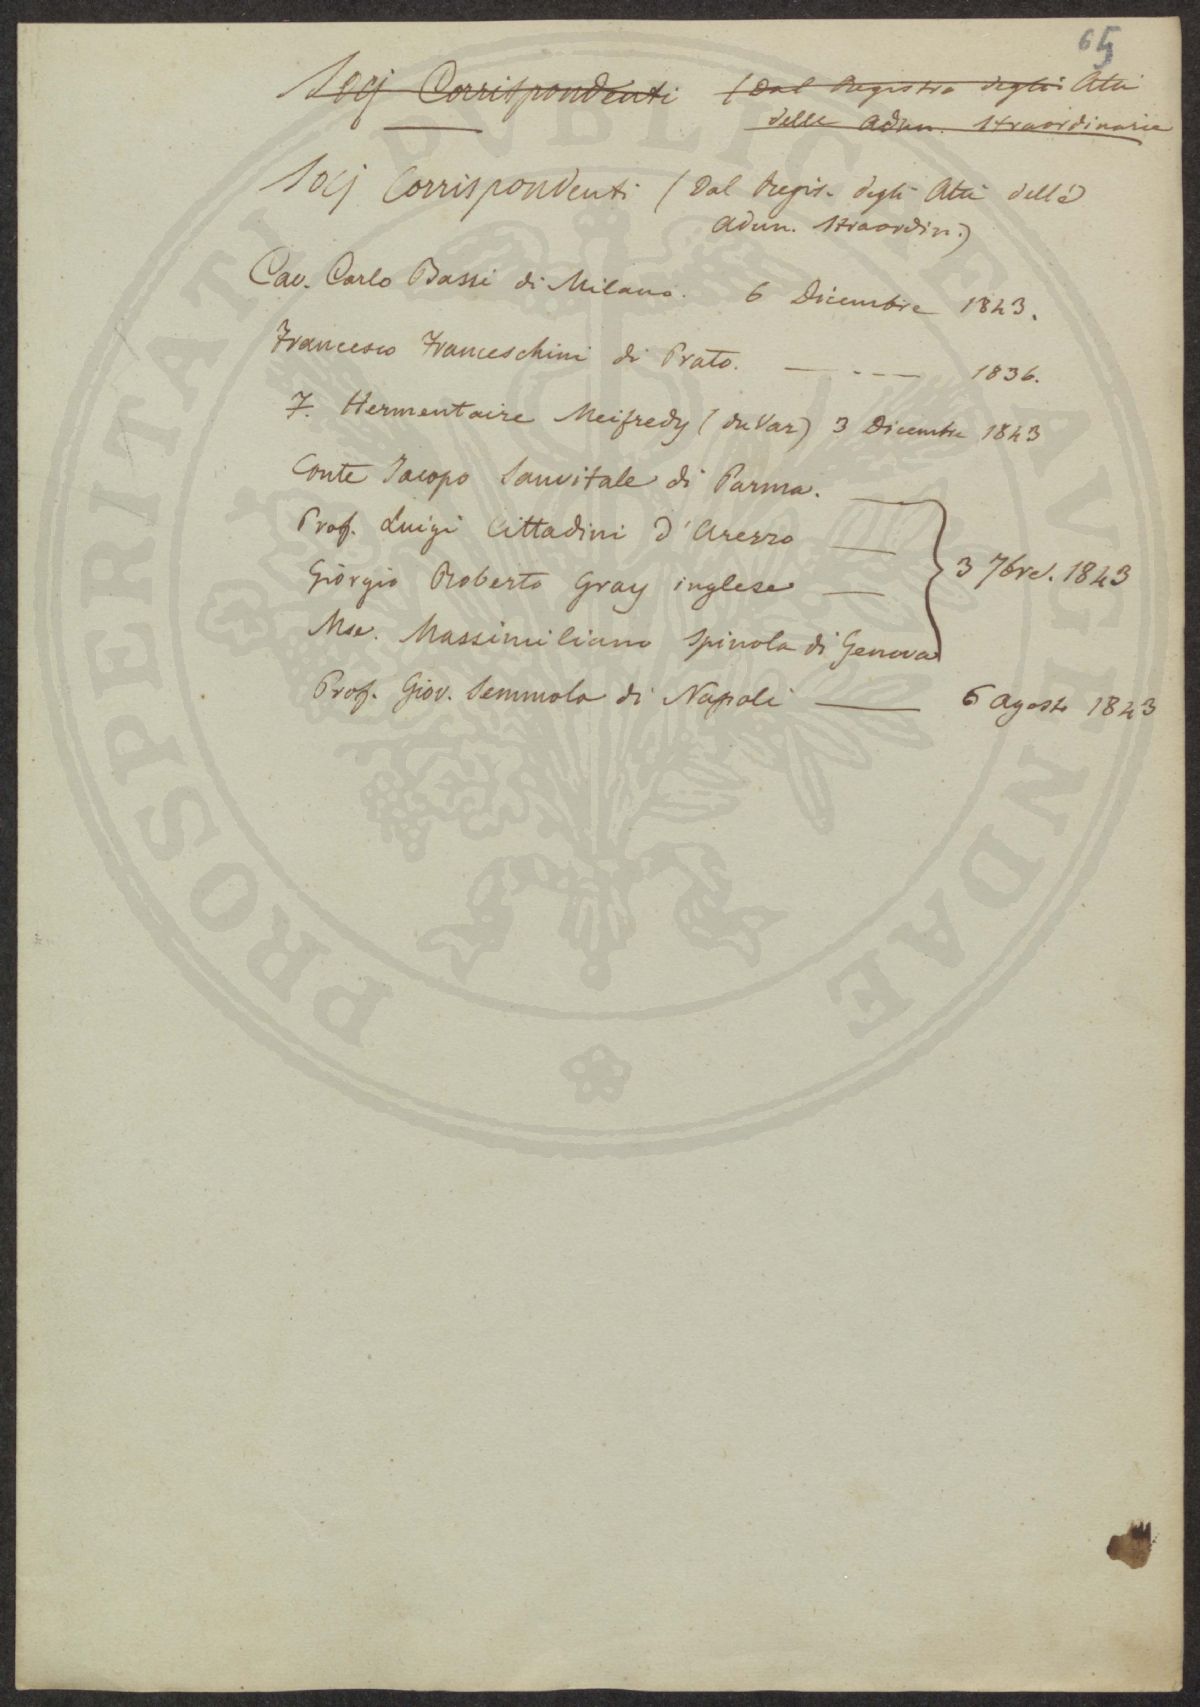 65
Socj Corrispondenti (Dal Registro degli Atti
delle Adun. Straordinarie
Socj Corrispondenti (Dal Regis. degli Atti delle
Adun. Straordin.)
Cav. Carlo Bassi di Milano. 6 Dicembre 1843.
Francesco Franceschini di Prato. — - - — 1836.
F. Hermentaire Meifredy (du Var) 3 Dicembre 1843
Conte Jacopo Sanvitale di Parma. —
Prof. Luigi Cittadini d'Arezzo —
Giorgio Roberto Gray inglese —
3 7bre. 1843
Mse. Massimiliano Spinola di Genova
Prof. Giov. Semmola di Napoli — 6 Agosto 1843
PROSPERITATI PUBLICAE AUGENDAE